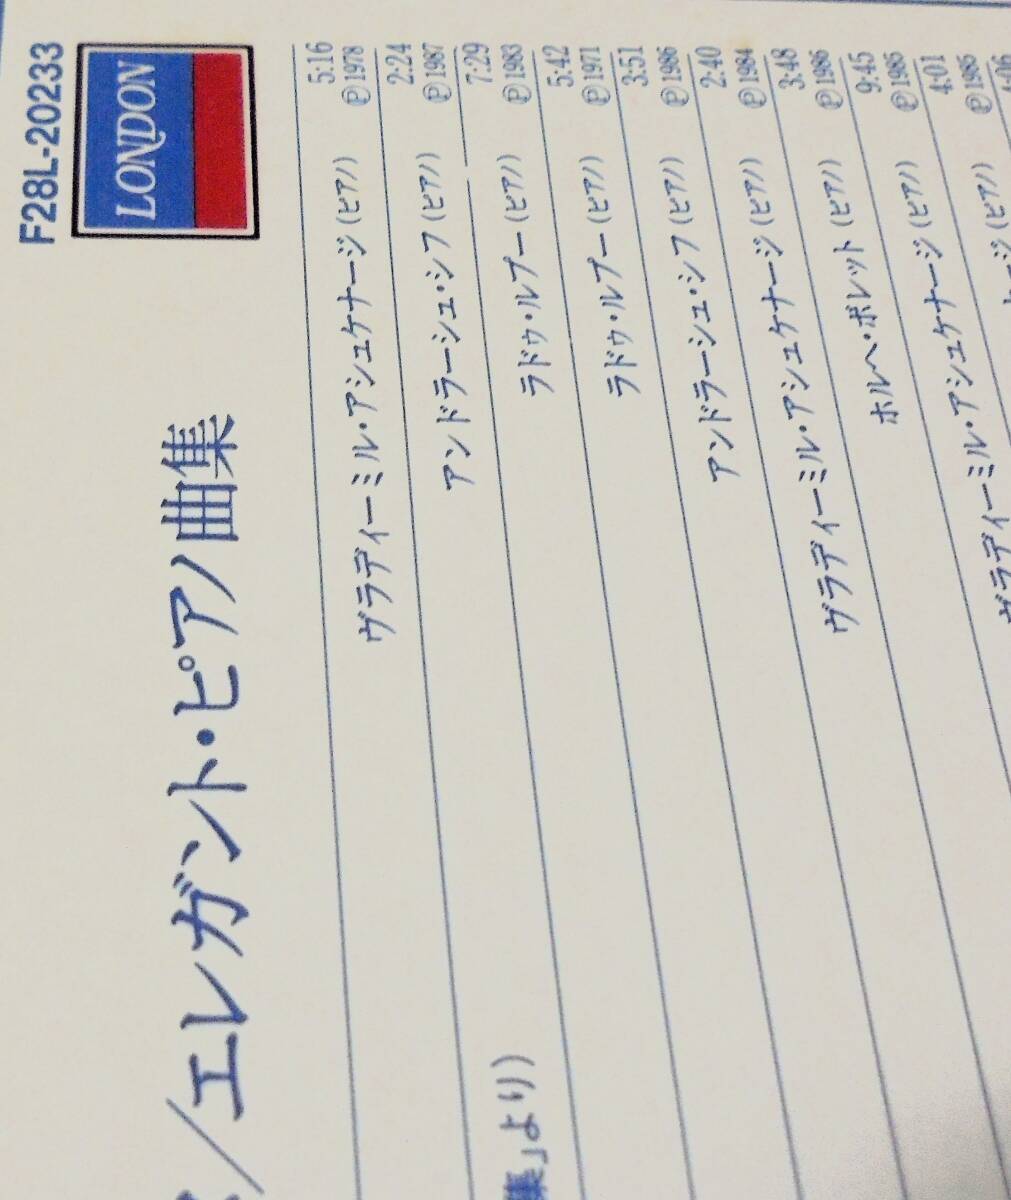 F28L-20233
LONDON
／エレガント・ピアノ曲集
5:16
ヴラディーミル・アシュケナージ(ピアノ) ℗1978
2:24
集」より) アンドラーシュ・シフ(ピアノ) ℗1987
7:29
ラドゥ・ルプー(ピアノ) ℗1983
5:42
ラドゥ・ルプー(ピアノ) ℗1971
3:51
アンドラーシュ・シフ(ピアノ) ℗1986
2:40
ヴラディーミル・アシュケナージ(ピアノ) ℗1984
3:48
ホルヘ・ボレット(ピアノ) ℗1986
9:45
ヴラディーミル・アシュケナージ(ピアノ) ℗1985
4:01
ヴラディーミル・アシュケナージ(ピアノ) ℗1985